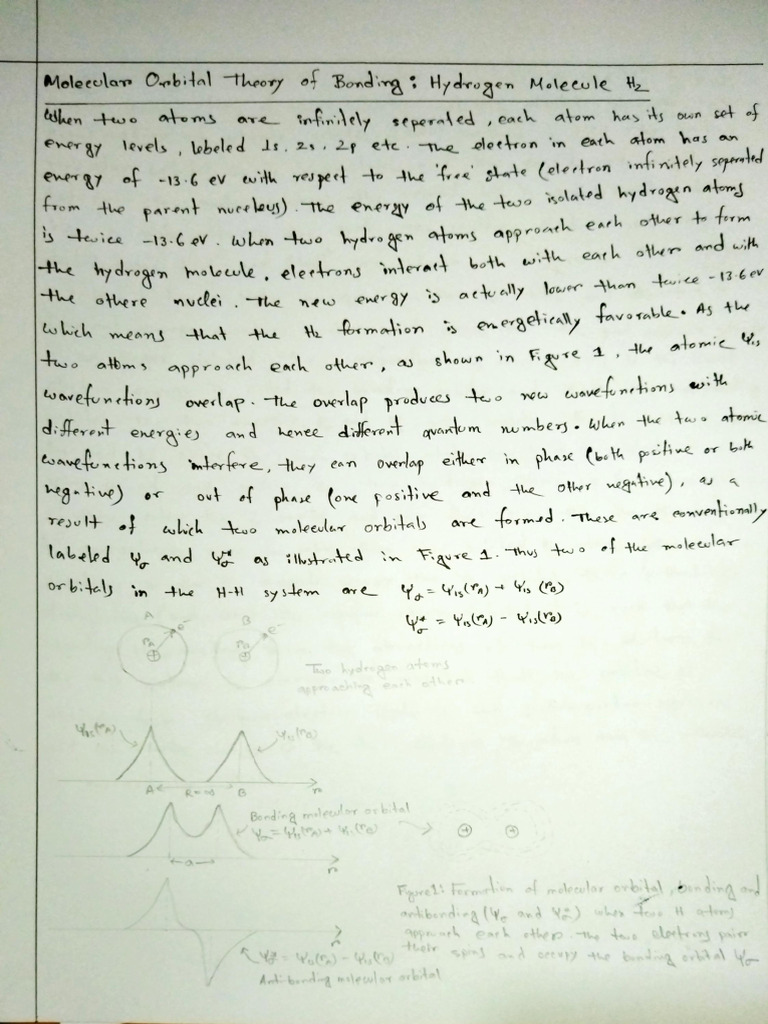 Molecular Orbital Theory of Bonding: Hydrogen Molecule H₂
When two atoms are infinitely seperated, each atom has its own set of
energy levels, lebeled 1s. 2s. 2p etc. The electron in each atom has an
energy of -13.6 eV with respect to the 'free' state (electron infinitely seperated
from the parent nuceleus). The energy of the two isolated hydrogen atoms
is twice -13.6 eV. When two hydrogen atoms approach each other to form
the hydrogen molecule, electrons interact both with each other and with
the othere nuclei. The new energy is actually lower than twice -13.6 eV
which means that the H₂ formation is energetically favorable. As the
two atoms approach each other, as shown in Figure 1, the atomic Ψ₁s
wavefunctions overlap. The overlap produces two new wavefunctions with
different energies and hence different quantum numbers. When the two atomic
wavefunctions interfere, they can overlap either in phase (both positive or both
negative) or out of phase (one positive and the other negative), as a
result of which two molecular orbitals are formed. These are conventionally
labeled Ψσ and Ψσ* as illustrated in Figure 1. Thus two of the molecular
orbitals in the H-H system are Ψσ = Ψ₁s(rA) + Ψ₁s(rB)
Ψσ* = Ψ₁s(rA) - Ψ₁s(rB)
A B
rA e⁻ rB e⁻
+ +
Two hydrogen atoms
approaching each other
Ψ₁s(rA) Ψ₁s(rB)
A R=∞ B r
Bonding molecular orbital
Ψσ = Ψ₁s(rA) + Ψ₁s(rB)
+ +
a r
Figure 1: Formation of molecular orbital, bonding and
antibonding (Ψσ and Ψσ*) when two H atoms
approach each other. The two electrons pair
their spins and occupy the bonding orbital Ψσ
r
Ψσ* = Ψ₁s(rA) - Ψ₁s(rB)
Anti-bonding molecular orbital